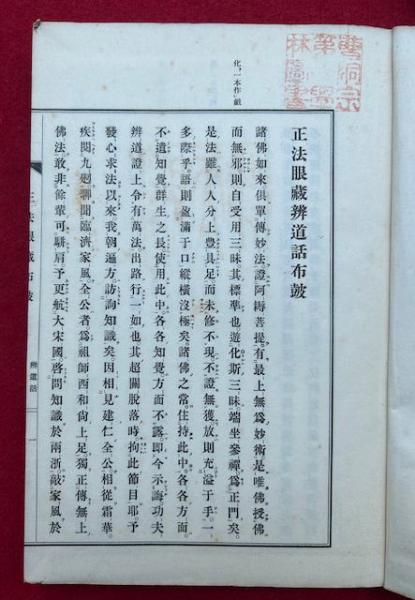 曹洞宗
第
林圖書
化、一本作戲
正法眼藏辨道話布鼓
諸佛如來俱單傳妙法證阿耨菩提有最上無爲妙術是唯佛授佛
而無邪則自受用三昧其標準也遊化斯三昧端坐參禪爲正門矣
是法雖人人分上豐具足而未修不現不證無獲放則充溢于手一
多際乎語則盈滿于口縱橫沒極矣諸佛之常住持此中各各方面
不遺知覺群生之長使用此中各各知覺方面不露即今示誨功夫
辨道證上令有萬法出路行一如也其超關脫落時拘此節目耶予
發心求法以來我朝遍方訪詢知識矣因相見建仁全公相從霜華
疾閱九廻聊聞臨濟家風全公者爲祖師西和尙上足獨正傳無上
佛法敢非餘輩可駢肩予更航大宋國啓問知識於兩浙敲家風於
正法眼藏布鼓
辨道話
一